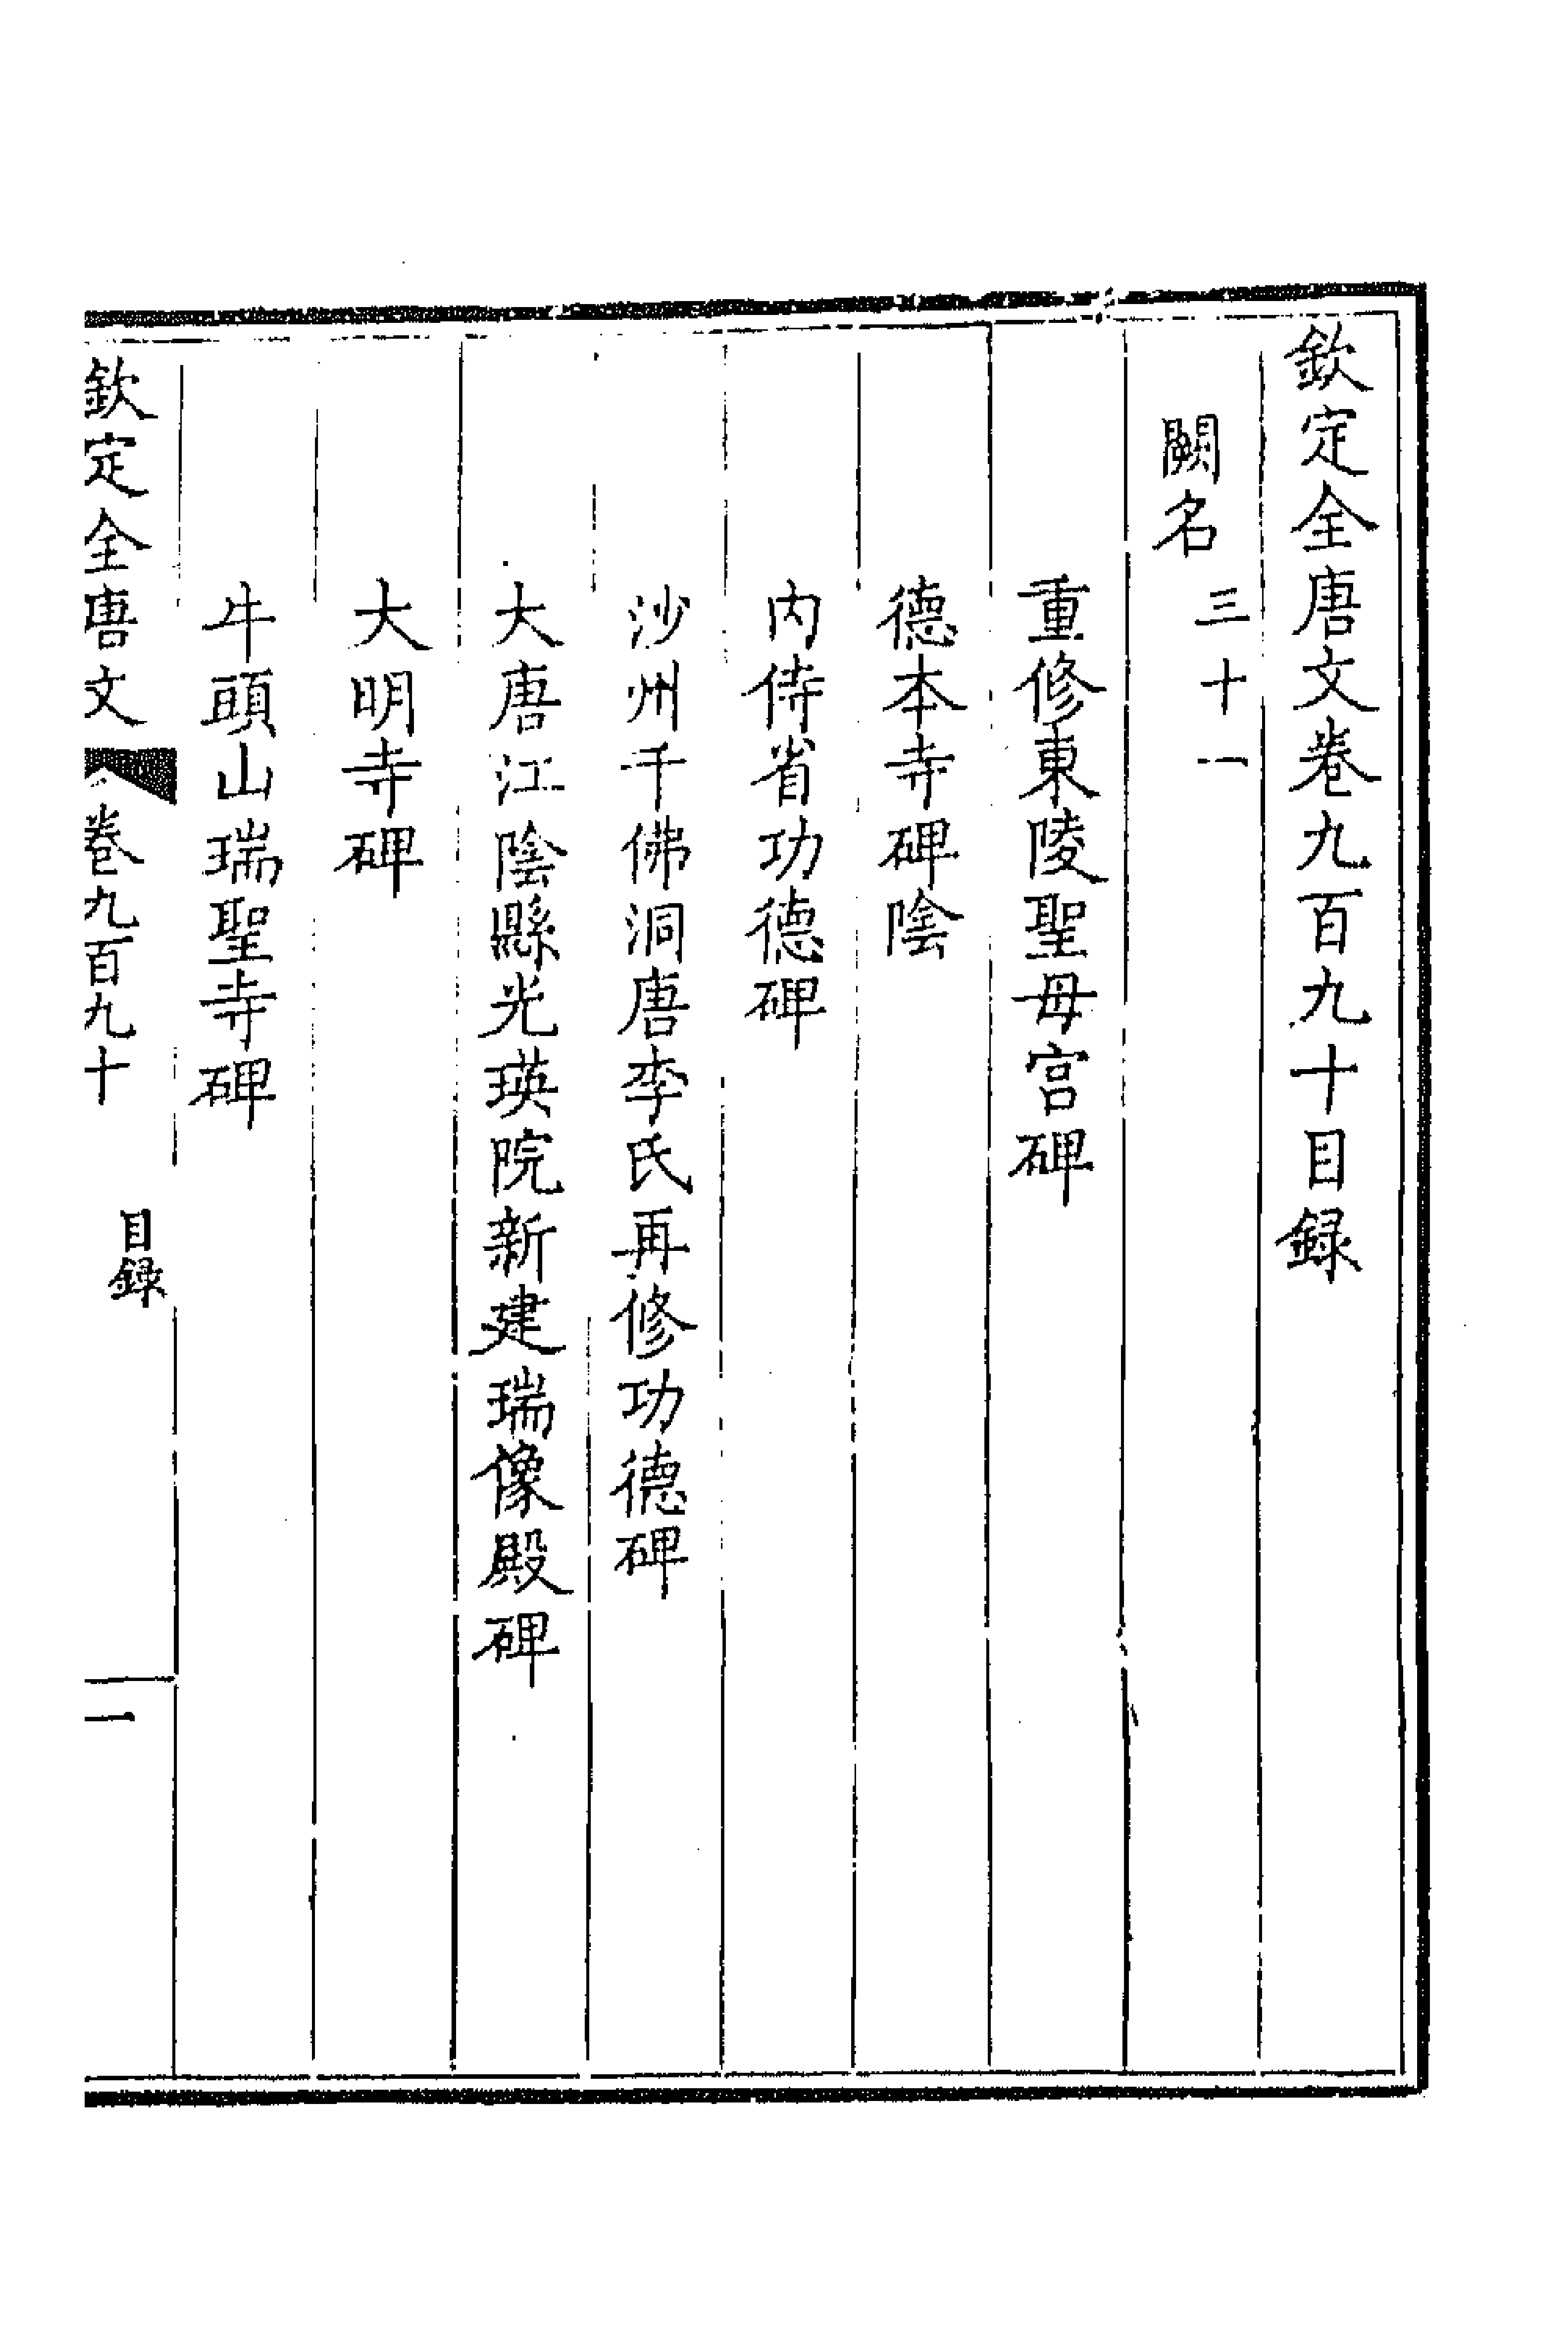 欽定全唐文卷九百九十目録
闕名三十一
重修東陵聖母宫碑
德本寺碑陰
内侍省功德碑
沙州千佛洞唐李氏再修功德碑
大唐江陰縣光瑛院新建瑞像殿碑
大明寺碑
牛頭山瑞聖寺碑
欽定全唐文 卷九百九十 目録 一